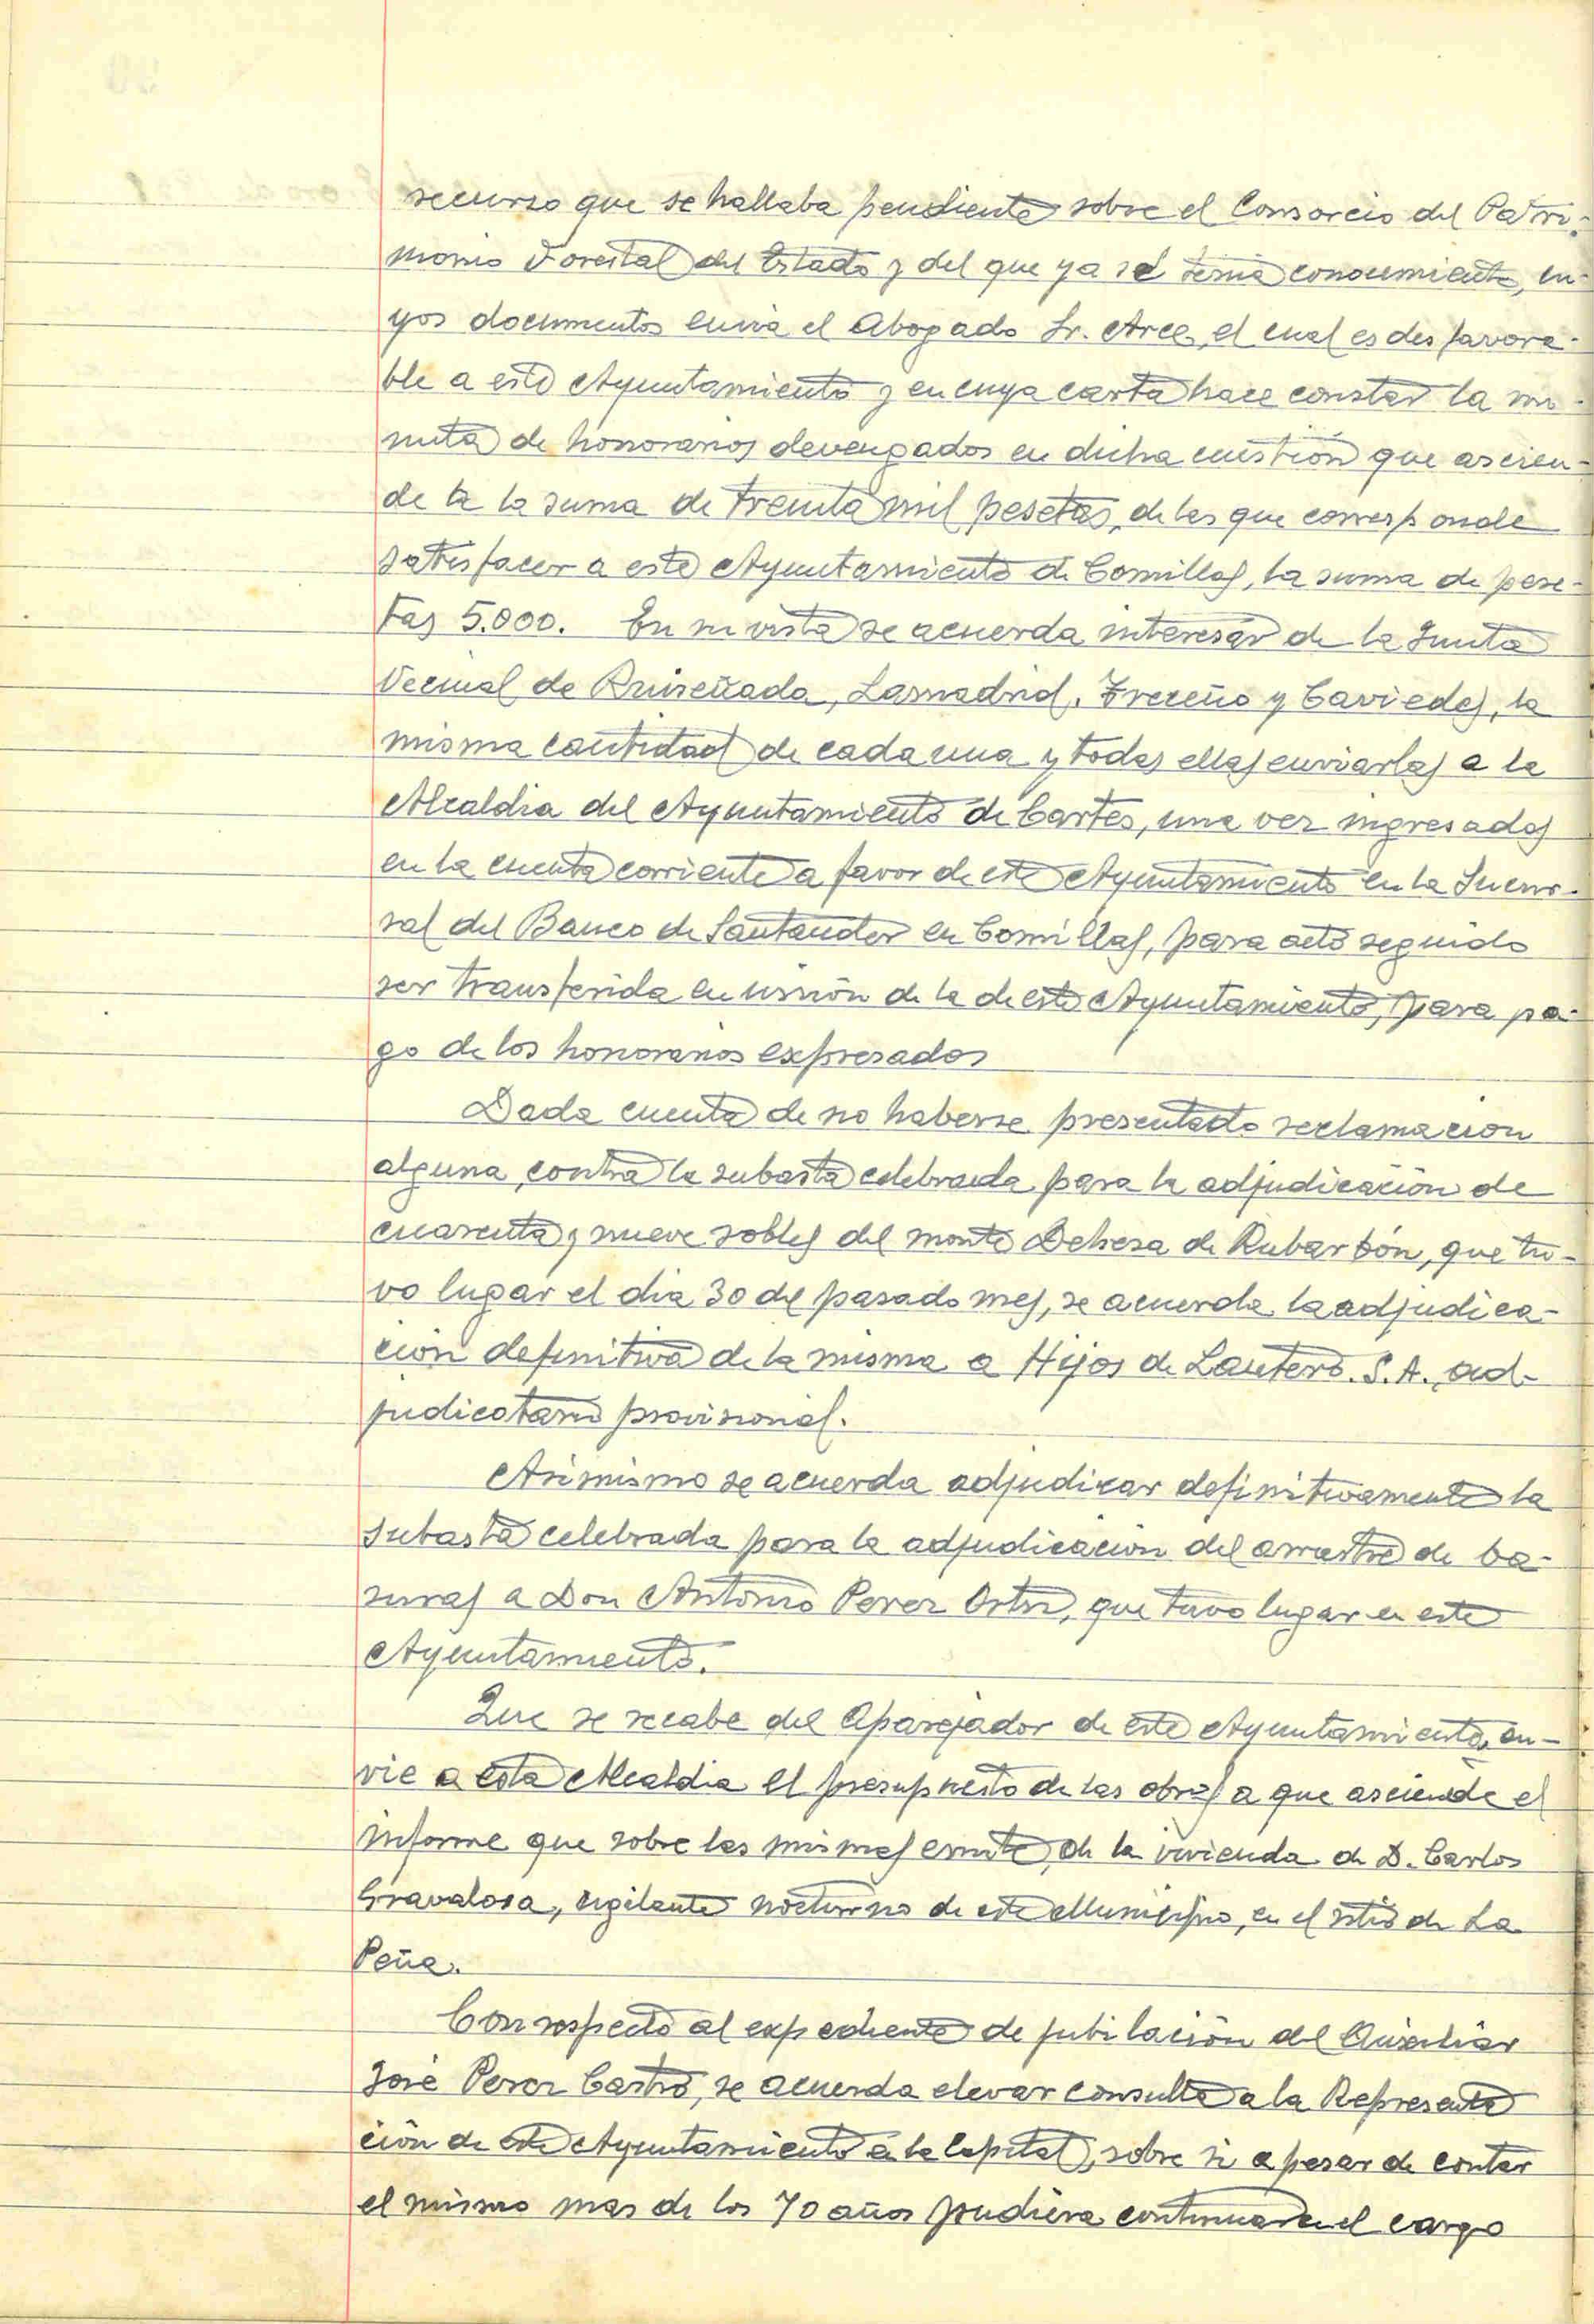 recurso que se hallaba pendiente sobre el Consorcio del Patri-
monio Forestal del Estado y del que ya se tenia conocimiento, cu-
yos documentos envia el Abogado Sr. Arce, el cual es desfavora-
ble a este Ayuntamiento y en cuya carta hace constar la mi-
nuta de honorarios devengados en dicha cuestión que ascien-
de a la suma de treinta mil pesetas, de las que corresponde
satisfacer a este Ayuntamiento de Comillas, la suma de pese-
tas 5.000. En su vista se acuerda interesar de la Junta
Vecinal de Ruiseñada, Lamadrid, Treceño y Caviedes, la
misma cantidad de cada una y todas ellas enviarlas a la
Alcaldia del Ayuntamiento de Cartes, una vez ingresados
en la cuenta corriente a favor de este Ayuntamiento en la Sucur-
sal del Banco de Santander en Comillas, para acto seguido
ser transferida en unión de la de este Ayuntamiento, para pa-
go de los honorarios expresados
Dada cuenta de no haberse presentado reclamacion
alguna, contra la subasta celebrada para la adjudicación de
cuarenta y nueve robles del monte Dehesa de Rubarbón, que tu-
vo lugar el dia 30 del pasado mes, se acuerda la adjudica-
ción definitiva de la misma a Hijos de Lantero. S.A., ad-
judicatario provisional.
Asimismo se acuerda adjudicar definitivamente la
subasta celebrada para la adjudicacion del arrastre de ba-
suras a Don Antonio Perez Ortiz, que tuvo lugar en este
Ayuntamiento.
Que se recabe del Aparejador de este Ayuntamiento, en-
vie a esta Alcaldia el presupuesto de las obras a que asciende el
informe que sobre las mismas emite, de la vivienda de D. Carlos
Gravalosa, vigilante nocturno de este Municipio, en el sitio de La
Peña.
Con respecto al expediente de jubilación del Auxiliar
José Perez Castro, se acuerda elevar consulta a la Representa
ción de este Ayuntamiento en la Capital, sobre si a pesar de contar
el mismo mas de los 70 años pudiera continuar en el cargo